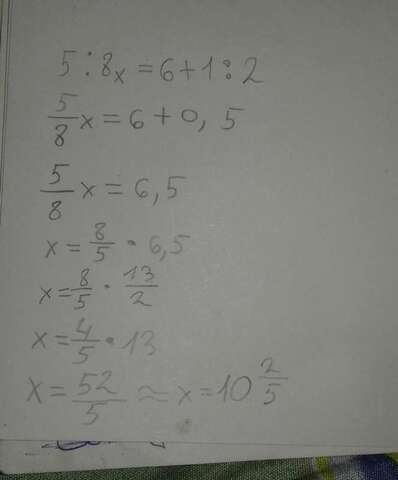 5:8x=6+1:2
5/8 x = 6 + 0,5
5/8 x = 6,5
x = 8/5 · 6,5
x = 8/5 · 13/2
x = 4/5 · 13
x = 52/5 ≈ x = 10 2/5